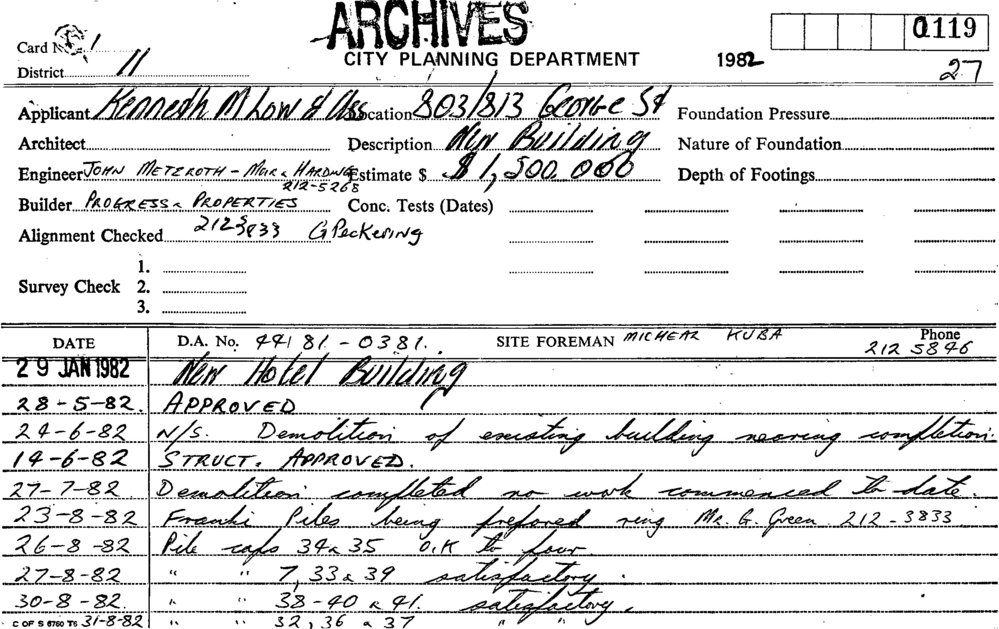 ARCHIVES
0119
Card No. 1
CITY PLANNING DEPARTMENT 1982
District 11
27
Applicant Kenneth M Low & Ass Location 803/813 George St Foundation Pressure
Architect Description New Building Nature of Foundation
Engineer John Metzroth - Muir & Harding Estimate $ $1,500,000 Depth of Footings
212-5268
Builder Progress & Properties Conc. Tests (Dates)
Alignment Checked 212 3833 G Peckering
1.
Survey Check 2.
3.
DATE D.A. No. 44 81-0381. SITE FOREMAN MICHEAL KUBA Phone
212 5846
29 JAN 1982 New Hotel Building
28-5-82. APPROVED
24-6-82 N/S. Demolition of existing building nearing completion.
14-6-82 STRUCT. APPROVED.
27-7-82 Demolition completed no work commenced to date.
23-8-82 Franki Piles being prefored ring Mr. G. Green 212-3833
26-8-82 Pile caps 34 & 35 O.K to pour.
27-8-82 " " 7, 33 & 39 satisfactory.
30-8-82. " " 38-40 & 41. satisfactory.
C OF S 6760 T6 31-8-82 " " 32, 36 & 37 " "